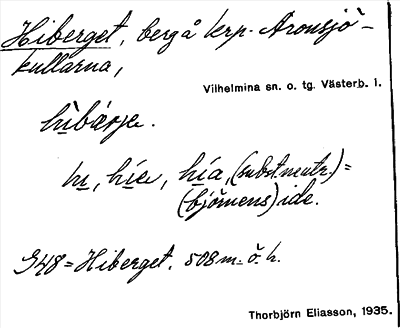 Hiberget, berg å krp. Aronsjö-
kullarna,
Vilhelmina sn. o. tg. Västerb. l.
hìbárje.
hı, híe, hía, (subst. neutr.) =
(björnens) ide.
G48 = Hiberget. 508 m. ö. h.
Thorbjörn Eliasson, 1935.